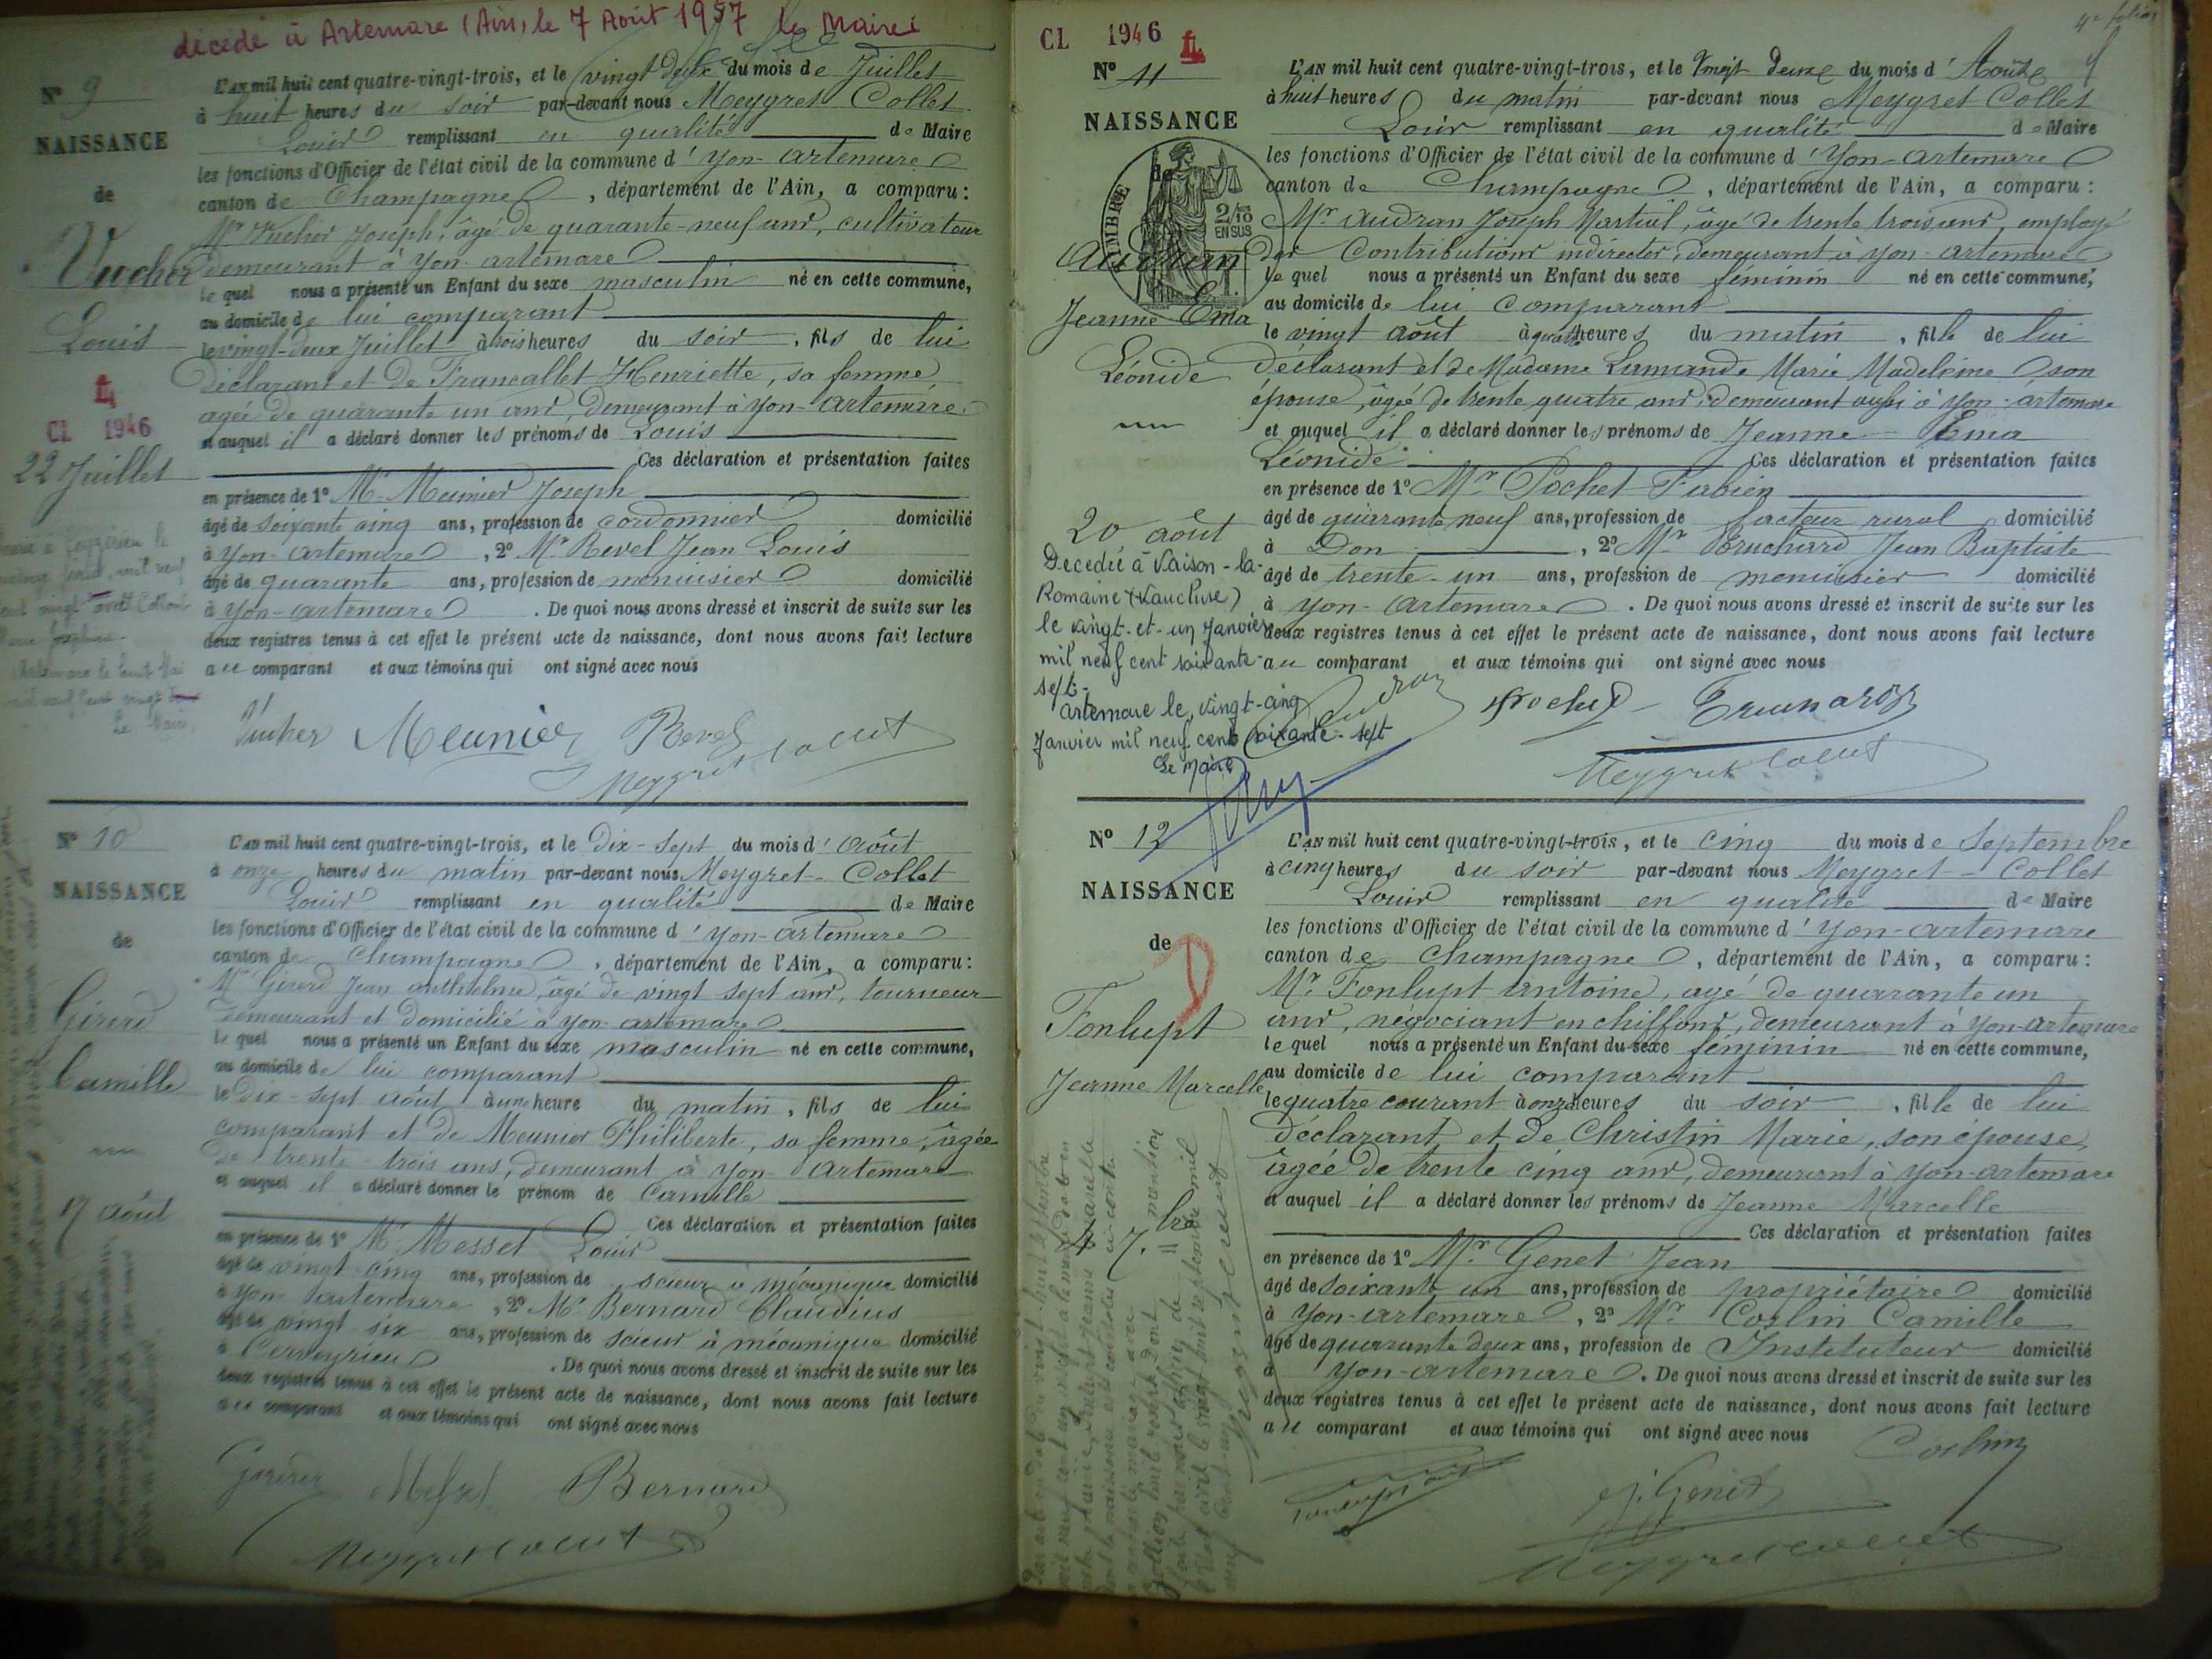 décédé à Artemare (Ain) le 7 Août 1957 le Maire
N° 9
NAISSANCE
de
Vucher
Louis
CL 1946
22 Juillet
L'AN mil huit cent quatre-vingt-trois, et le vingt deux du mois de Juillet
à huit heures du soir par-devant nous Meygret Collet
Louis remplissant en qualité de Maire
les fonctions d'Officier de l'état civil de la commune d'Yon-Artemare
canton de Champagne, département de l'Ain, a comparu:
Mr Vucher Joseph, âgé de quarante-neuf ans, cultivateur
demeurant à Yon-artemare
le quel nous a présenté un Enfant du sexe masculin né en cette commune,
au domicile de lui comparant
le vingt-deux Juillet à trois heures du soir, fils de lui
déclarant et de Francallet Henriette, sa femme,
agée de quarante un ans, demeurant à Yon-Artemare
et auquel il a déclaré donner les prénoms de Louis
Ces déclaration et présentation faites
en présence de 1° Mr Meunier Joseph
âgé de soixante cinq ans, profession de cordonnier domicilié
à Yon-artemare, 2° Mr Revel Jean Louis
âgé de quarante ans, profession de menuisier domicilié
à Yon-artemare. De quoi nous avons dressé et inscrit de suite sur les
deux registres tenus à cet effet le présent acte de naissance, dont nous avons fait lecture
au comparant et aux témoins qui ont signé avec nous
Vucher Meunier Revel
Meygret Collet
N° 10
NAISSANCE
de
Girerd
Camille
17 août
L'AN mil huit cent quatre-vingt-trois, et le Dix-Sept du mois d'Août
à onze heures du matin par-devant nous Meygret-Collet
Louis remplissant en qualité de Maire
les fonctions d'Officier de l'état civil de la commune d'Yon-Artemare
canton de Champagne, département de l'Ain, a comparu:
Mr Girerd Jean anthelme, âgé de vingt sept ans, tourneur
demeurant et domicilié à Yon-artemare
le quel nous a présenté un Enfant du sexe masculin né en cette commune,
au domicile de lui comparant
le Dix-sept août à une heure du matin, fils de lui
comparant et de Meunier Philiberte, sa femme, âgée
de trente-trois ans, demeurant à Yon-Artemare
et auquel il a déclaré donner le prénom de Camille
Ces déclaration et présentation faites
en présence de 1° Mr Messet Louis
âgé de vingt-cinq ans, profession de scieur à mécanique domicilié
à Yon-Artemare, 2° Mr Bernard Claudius
âgé de vingt six ans, profession de scieur à mécanique domicilié
à Cerveyrieu. De quoi nous avons dressé et inscrit de suite sur les
deux registres tenus à cet effet le présent acte de naissance, dont nous avons fait lecture
au comparant et aux témoins qui ont signé avec nous
Girerd Messet Bernard
Meygret Collet
4e folio
CL 1946
N° 11
NAISSANCE
de
TIMBRE
2/10
EN SUS
Audran
Jeanne-Ema
Léonide
20 août
Décédée à Vaison-la-
Romaine (Vaucluse)
le vingt-et-un Janvier
mil neuf cent soixante-
sept-
Artemare le vingt-cinq
Janvier mil neuf cent soixante-sept
Le Maire
L'AN mil huit cent quatre-vingt-trois, et le Vingt deux du mois d'Août
à huit heures du matin par-devant nous Meygret Collet
Louis remplissant en qualité de Maire
les fonctions d'Officier de l'état civil de la commune d'Yon-artemare
canton de Champagne, département de l'Ain, a comparu:
Mr Audran Joseph Martial, âgé de trente trois ans, employé
des Contributions indirectes, demeurant à Yon-artemare
le quel nous a présenté un Enfant du sexe féminin né en cette commune,
au domicile de lui comparant
le vingt août à quatre heures du matin, fille de lui
déclarant et de Madame Lamande Marie Madeleine, son
épouse, âgée de trente quatre ans, demeurant aussi à Yon-artemare
et auquel il a déclaré donner les prénoms de Jeanne-Ema
Léonide Ces déclaration et présentation faites
en présence de 1° Mr Pochet Fabien
âgé de quarante neuf ans, profession de facteur rural domicilié
à Don, 2° Mr Jean Baptiste
âgé de trente-un ans, profession de menuisier domicilié
à Yon-Artemare. De quoi nous avons dressé et inscrit de suite sur les
deux registres tenus à cet effet le présent acte de naissance, dont nous avons fait lecture
au comparant et aux témoins qui ont signé avec nous
Audran Pochet
Meygret Collet
N° 12
NAISSANCE
de
Fonlupt
Jeanne Marcelle
4 7bre
L'AN mil huit cent quatre-vingt-trois, et le cinq du mois de Septembre
à cinq heures du soir par-devant nous Meygret-Collet
Louis remplissant en qualité de Maire
les fonctions d'Officier de l'état civil de la commune d'Yon-artemare
canton de Champagne, département de l'Ain, a comparu:
Mr Fonlupt Antoine, âgé de quarante un
ans, négociant en chiffons, demeurant à Yon-Artemare
le quel nous a présenté un Enfant du sexe féminin né en cette commune,
au domicile de lui comparant
le quatre courant à onze heures du soir, fille de lui
déclarant et de Christin Marie, son épouse,
âgée de trente cinq ans, demeurant à Yon-artemare
et auquel il a déclaré donner les prénoms de Jeanne Marcelle
Ces déclaration et présentation faites
en présence de 1° Mr Genet Jean
âgé de soixante un ans, profession de propriétaire domicilié
à Yon-artemare, 2° Mr Coslin Camille
âgé de quarante deux ans, profession de Instituteur domicilié
à Yon-artemare. De quoi nous avons dressé et inscrit de suite sur les
deux registres tenus à cet effet le présent acte de naissance, dont nous avons fait lecture
au comparant et aux témoins qui ont signé avec nous
Coslin
J. Genet
Meygret Collet